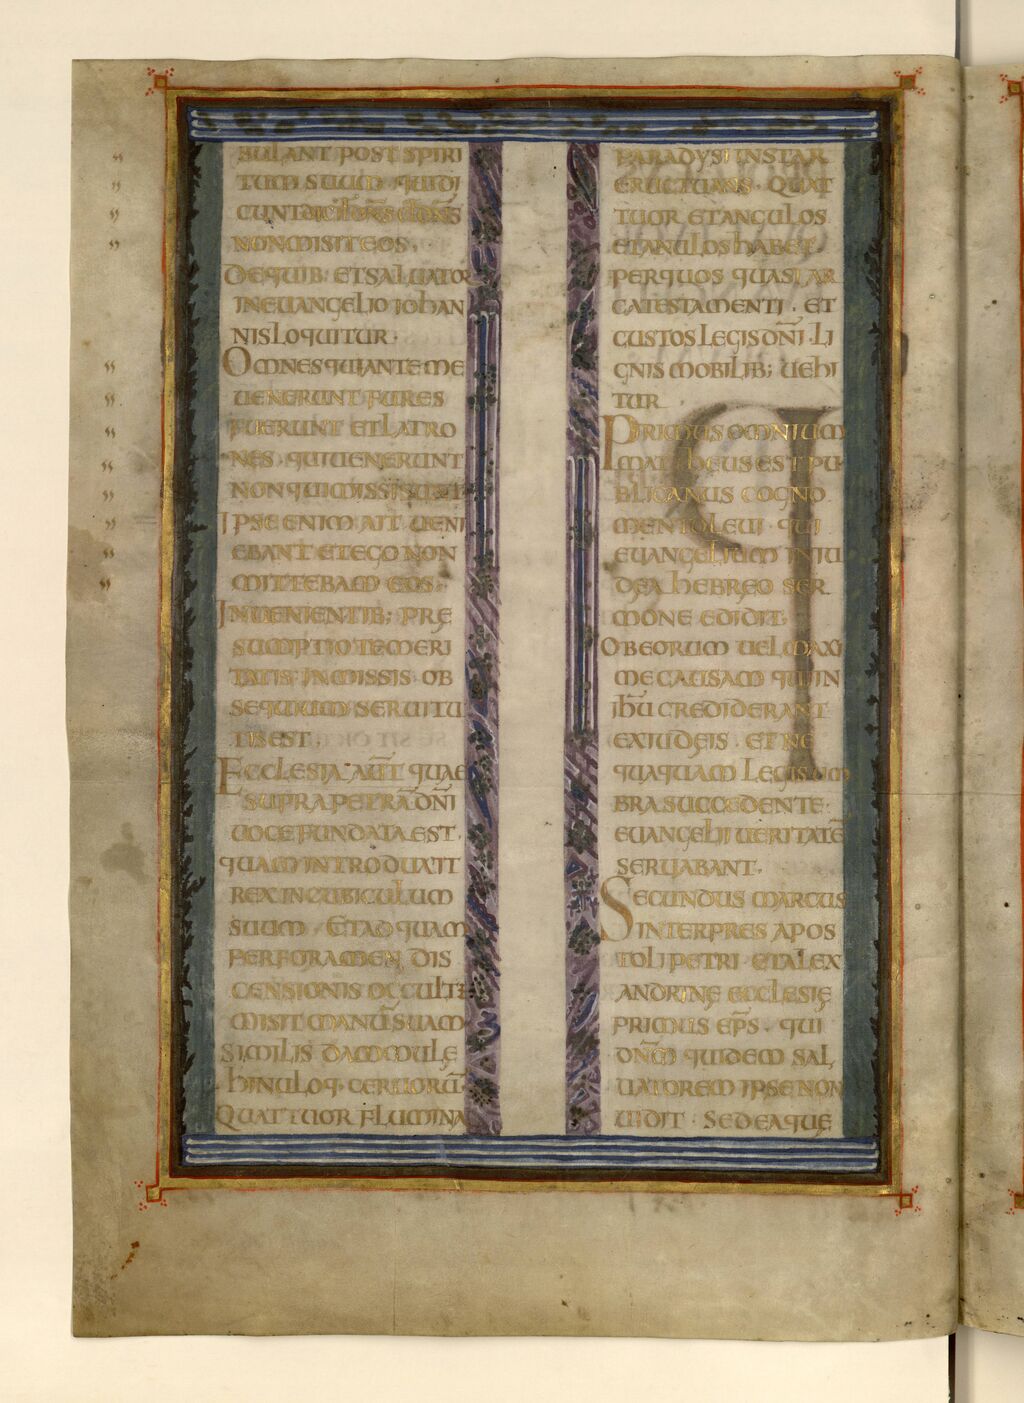 BULANT POST SPIRI
TUM SUUM · QUI DI
CUNT
NON MISIT EOS .
DE QUIB; ET SALUATOR
IN EUANGELIO IOHAN
NIS LOQUITUR ·
OMNES QUI ANTE ME
UENERUNT FURES
FUERUNT ET LATRO
NES · QUI UENERUNT
NON QUI MISSI SUNT
IPSE ENIM AIT UENI
EBANT ET EGO NON
MITTEBAM EOS ·
IN UENIENTIB; PRĘ
SUMPTIO TEMERI
TATIS IN MISSIS OB
SEQUIUM SERUITU
TIS EST ,
ECCLESIA AUT̄ QUAE
SUPRA PETRĀ DN̄I
UOCE FUNDATA EST ·
QUAM INTRODUXIT
REX IN CUBICULUM
SUUM · ET AD QUAM
PER FORAMEN DIS
CENSIONIS OCCULTE
MISIT MANŪ SUAM
SIMILIS DAMMULE
HINULOQ · CERUORŪ ·
QUATTUOR FLUMINA
PARADYSI INSTAR
ERUCTUANS · QUAT
TUOR ET ANGULOS
ET ANULOS HABET
PER QUOS QUASI AR
CA TESTAMENTI · ET
CUSTOS LEGIS DN̄I · LI
GNIS MOBILIB; UEHI
TUR
PRIMUS OMNIUM
MATHEUS EST PU
BLICANUS COGNO
MENTO LEUI · QUI
EUANGELIUM IN IU
DEA HEBREO SER
MONE EDIDIT ;
OB EORUM UEL MAXI
ME CAUSAM QUI IN
IHŪ CREDIDERANT
EX IUDEIS · ET NE
QUAQUAM LEGIS UM
BRA SUCCEDENTE ·
EUANGELII UERITATĒ
SERUABANT ·
SECUNDUS MARCUS
INTERPRES APOS
TOLI PETRI · ET ALEX
ANDRINĘ ECCLESIĘ
PRIMUS EP̄S · QUI
DN̄M QUIDEM SAL
UATOREM IPSE NON
UIDIT · SED EA QUE